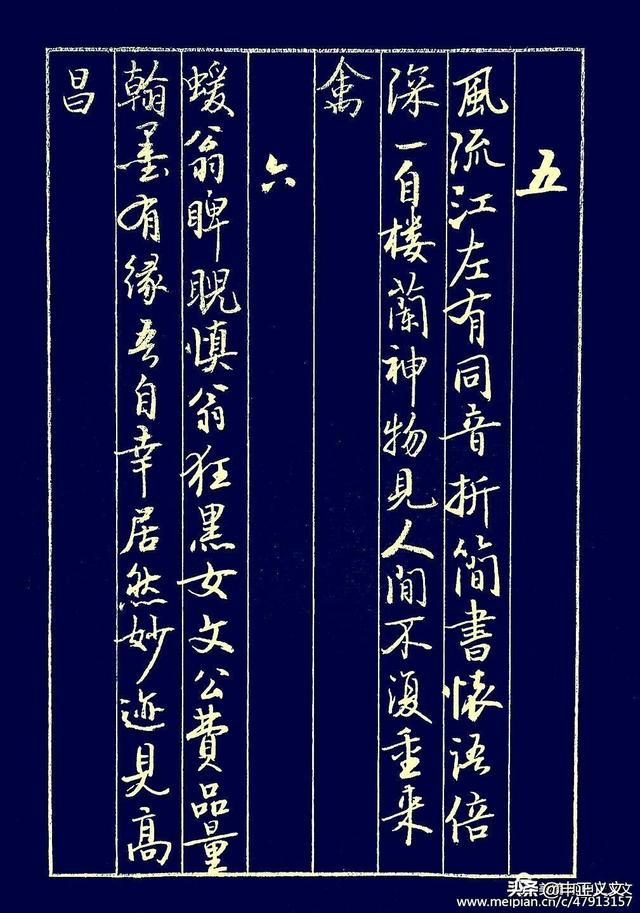 五
風流江左有同音折簡書懷語倍
深一自楼蘭神物見人間不復重来
禽
六
蝯翁睥睨慎翁狂黑女文公費品量
翰墨有緣吾自幸居然妙迹見高
昌
www.meipian.cn/c/47913157